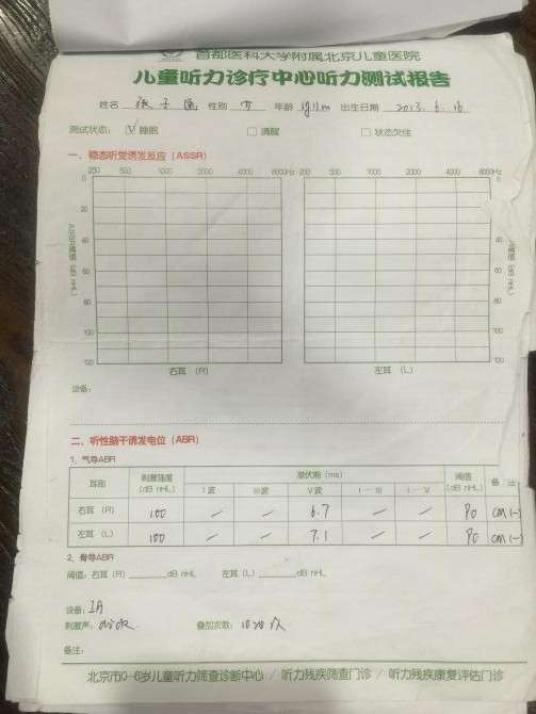 首都医科大学附属北京儿童医院
儿童听力诊疗中心听力测试报告
姓名 性别 女 年龄 出生日期 2013. 6. 18
测试状态: ☑ 睡眠 □ 清醒 □ 状态欠佳
一、稳态听觉诱发反应（ASSR）
250 500 1000 2000 4000 8000Hz 250 500 1000 2000 4000 8000Hz
0
20
40
60
80
100
120
ASSR阈值（dB nHL）
右耳 （R） 左耳 （L）
设备:
二、听性脑干诱发电位（ABR）
1、气导ABR
耳别 刺激强度（dB nHL） 潜伏期（ms） 阈值（dB nHL） 备 注
I 波 III波 V 波 I－III I－V
右耳 （R） 100 — — 6.7 — — 90 CM (-)
左耳 （L） 100 — — 7.1 — — 90 CM (-)
2、骨导ABR
阈值: 右耳（R）______dB nHL 左耳（L）______dB nHL
设备:
刺激声: 叠加次数: 1024 次
备注:
北京市0-6岁儿童听力筛查诊断中心 / 听力残疾筛查门诊 / 听力残疾康复评估门诊